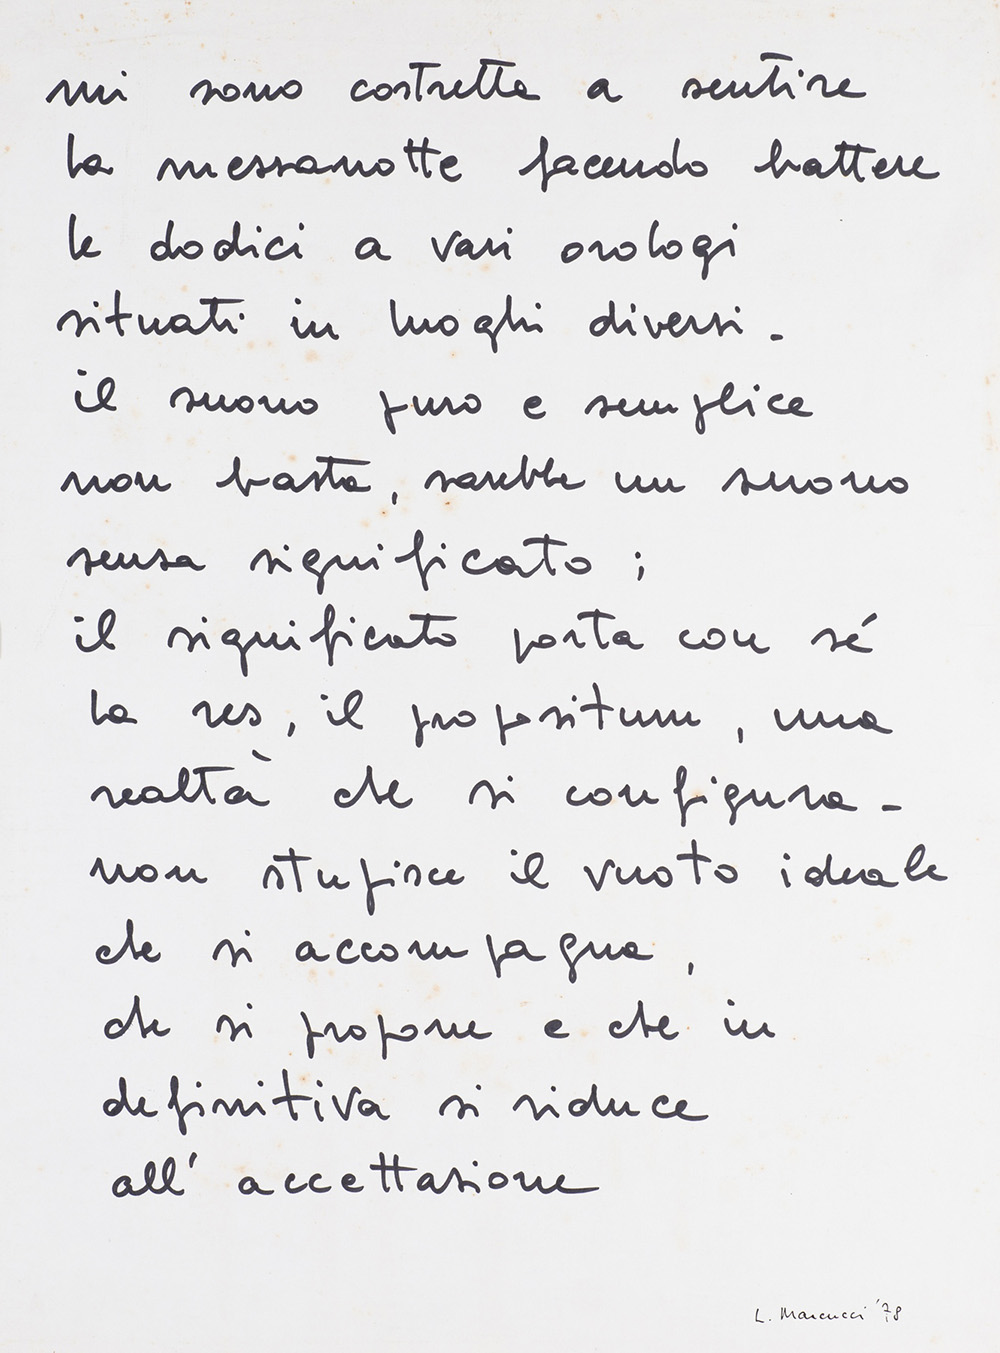 mi sono costretta a sentire
la mezzanotte facendo battere
le dodici a vari orologi
situati in luoghi diversi -
il suono puro e semplice
non basta, sarebbe un suono
senza significato ;
il significato porta con sé
la res, il propositum, una
realtà che si configura -
non stupisce il vuoto ideale
che si accompagna,
che si propone e che in
definitiva si riduce
all' accettazione
L. Marcucci '78